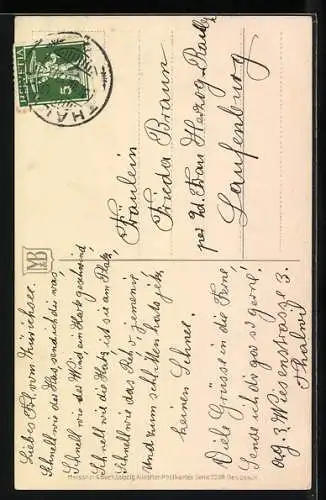 HELVETIA
5
THALWIL
Fräulein
Frieda Braun
per Ad. Frau Herzog-
Laufenburg
MB
Liebes Frl. vom Zürichsee.
Schnell wie der Has, send ich dir was,
Schnell wie der Wind, ein Kart geschwind
Schnell wie die Katz ist sie am Platz,
Schnell wie das Reh
Und zum schlitten hats jetz
keinen Schnee.
Viele Grüsse in die Ferne,
Sende ich dir gar so gerne!
3 Wiesenstrasse 3.
Thalwil
Meissner & Buch, Leipzig Künstler-Postkarten Serie